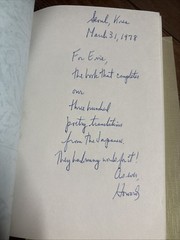 Seoul, Korea
March 31, 1978
For Evie,
the book that completes
our
three hundred
poetry translations
from the Japanese.
They had many
As ever
Howard